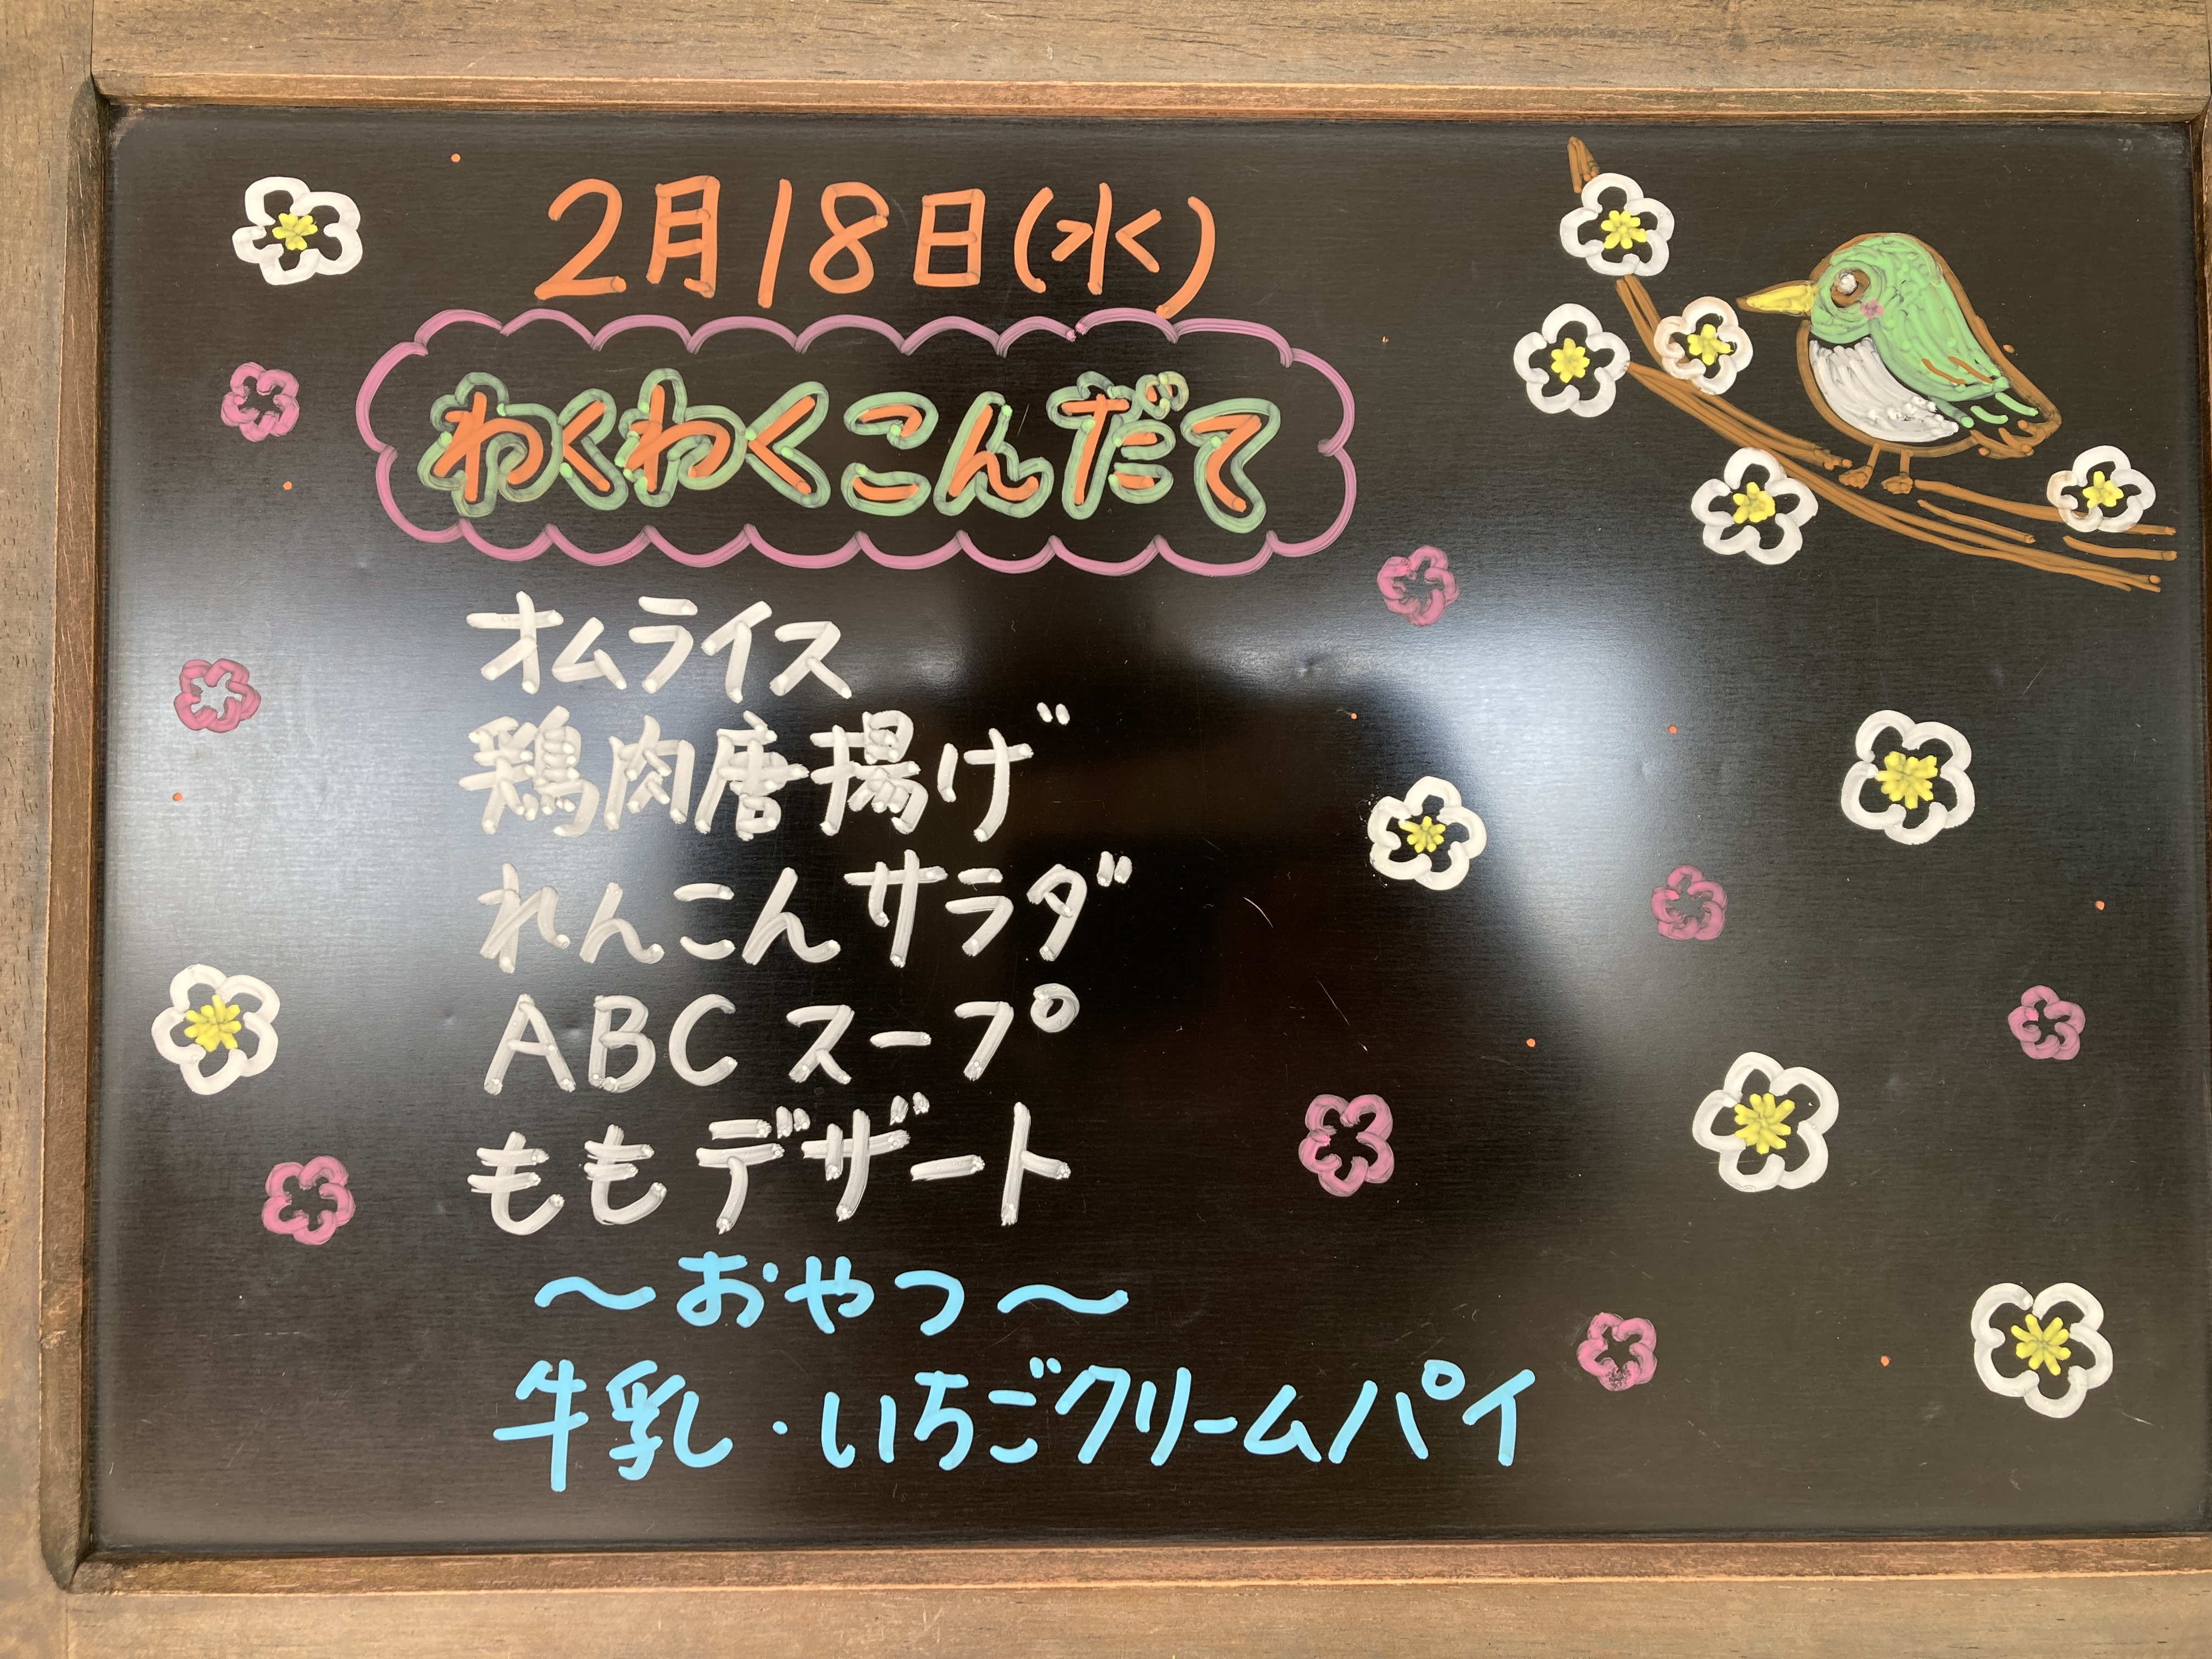 2月18日(水)
わくわくこんだて
オムライス
鶏肉唐揚げ
れんこんサラダ
ABCスープ
ももデザート
～おやつ～
牛乳・いちごクリームパイ